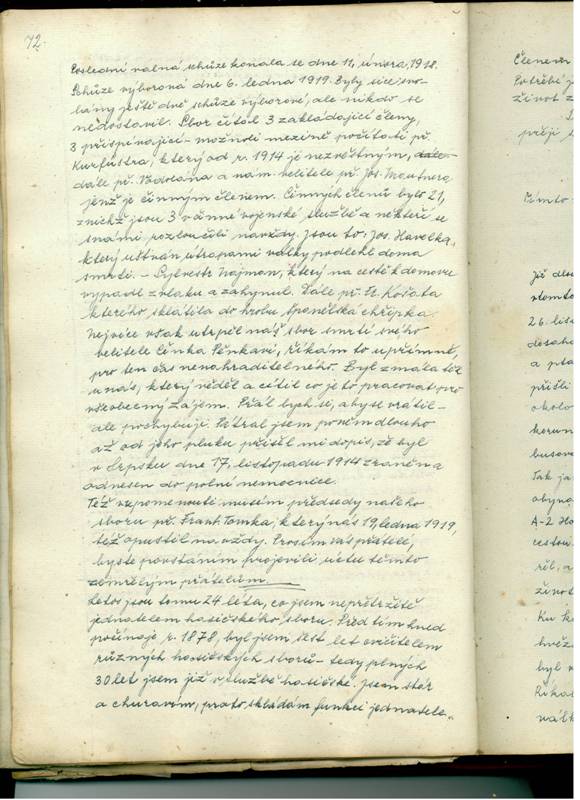 72.
Poslední valná schůze konala se dne 11, února, 1918.
Schůze výborová dne 6. ledna 1919. Byly sice svo-
lány ještě dvě schůze výborové, ale nikdo se
nedostavil. Sbor čítal 3 zakládající členy,
3 přispívající – možnoli mezi ně počítati př.
Kurfürstra, který od r. 1914 je nezvěstným,
dále př. Vodolána a nám. velitele př. Jos.
jenž je činným členem. Činných členů bylo 21,
z nichž jsou 3 v činné vojenské službě a někteří se
s námi rozloučili navždy. Jsou to: Jos. Havelka,
který uštván útrapami války podlehl doma
smrti. – Sylvestr Najmon, který na cestě k domovu
vypadl z vlaku a zahynul. Dále př. Fr. Košata
kterého sklátila do hrobu španělská chřipka.
Nejvíce však utrpěl náš sbor smrtí svého
velitele Čeňka Pěnkavi, říkám to upřímně,
pro ten čas nenahraditelného. Byl zmala těl
u nás, který věděl a cítil co je to pracovat pro
všeobecný zájem. Přál bych si, aby se vrátil –
ale pochybuji. Pátral jsem po něm dlouho
až od jeho pluku přišel mi dopis, že byl
v Srpsku dne 17, listopadu 1914 zraněn a
odnesen do polní nemocnice.
Též vzpomenouti musím předsedy našeho
sboru př. Frant. Tomka, který nás 19, ledna 1919,
též opustil navždy. Prosím vás přátelé,
byste povstáním projevili úctu těmto
zemřelým přátelům.
Letos jsou tomu 24 léta, co jsem nepřetržitě
jednatelem hasičského sboru. Před tím hned
počínaje r. 1878, byl jsem šest let cvičitelem
různých hasičských sborů – tedy plných
30 let jsem již v službě hasičské. Jsem stár
a churavím, proto skládám funkci jednatele„
Členever
Potřebě j
život z
přeji s
Tímto
Již dlou
26. list
dosaho
a pta
přišli
okolo
korun
busova
Tak ja
obyva
A-2 Ho
cestou
řel, a
život
Ku ko
hvěz
byl v
Říka
válk